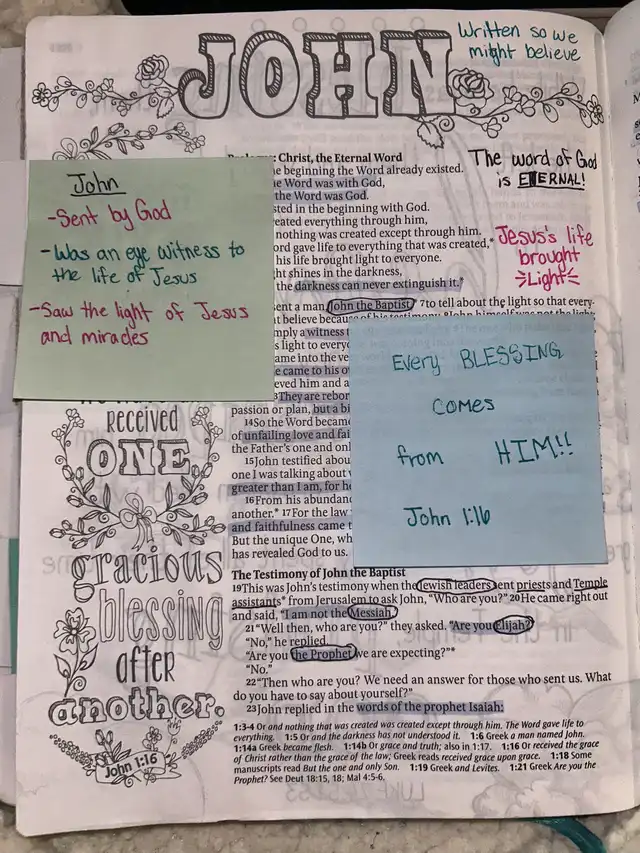 JOHN
Written so we
might believe
Prologue: Christ, the Eternal Word
the beginning the Word already existed.
he Word was with God,
the Word was God.
sted in the beginning with God.
eated everything through him,
nothing was created except through him.
ord gave life to everything that was created,*
his life brought light to everyone.
ht shines in the darkness,
the darkness can never extinguish it.*
sent a man, John the Baptist, * 7to tell about the light so that every-
t believe because of his testimony.
mply a witness t
s light to every
ame into the ve
e came to his o
eved him and a
They are rebor
passion or plan, but a bi
14So the Word became
of unfailing love and fai
the Father's one and onl
15John testified abou
one I was talking about
greater than I am, for he
16From his abundanc
another.* 17For the law
and faithfulness came t
But the unique One, wh
has revealed God to us.
The word of God
is ETERNAL!
Jesus's life
brought
Light
John
-Sent by God
-Was an eye witness to
the life of Jesus
-Saw the light of Jesus
and miracles
Every BLESSING
comes
from HIM!!
John 1:16
received
ONE
gracious
blessing
after
another.
John 1:16
The Testimony of John the Baptist
19This was John's testimony when the Jewish leaders sent priests and Temple
assistants* from Jerusalem to ask John, "Who are you?" 20He came right out
and said, "I am not the Messiah."
21"Well then, who are you?" they asked. "Are you Elijah?"
"No," he replied.
"Are you the Prophet we are expecting?"*
"No."
22"Then who are you? We need an answer for those who sent us. What
do you have to say about yourself?"
23John replied in the words of the prophet Isaiah:
1:3-4 Or and nothing that was created was created except through him. The Word gave life to
everything. 1:5 Or and the darkness has not understood it. 1:6 Greek a man named John.
1:14a Greek became flesh. 1:14b Or grace and truth; also in 1:17. 1:16 Or received the grace
of Christ rather than the grace of the law; Greek reads received grace upon grace. 1:18 Some
manuscripts read But the one and only Son. 1:19 Greek and Levites. 1:21 Greek Are you the
Prophet? See Deut 18:15, 18; Mal 4:5-6.